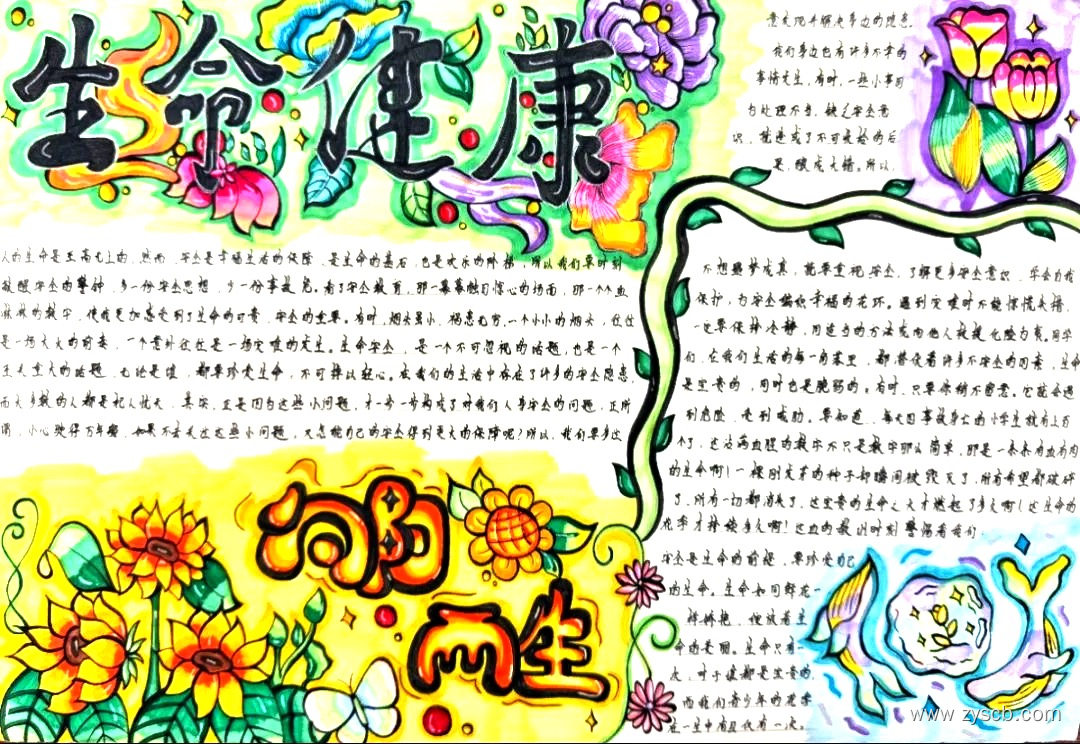 生命健康
人的生命是至高无上的,然而,安全是幸福生活的保障,是生命的基石,也是欢乐的阶梯,所以我们要时刻
敲醒安全的警钟,多一份安全思想,少一份事故危。有了安全教育,那一幕幕触目惊心的场面,那一个个血
淋淋的数字,使我更加感受到了生命的可贵,安全的重要。有时,烟头虽小,祸患无穷,一个小小的烟头,往往
是一场大火的前奏,一个意外往往是一场灾难的发生。生命安全,是一个不可忽视的话题,也是一个
至关重大的话题,无论是谁,都要珍爱生命,不可掉以轻心。在我们的生活中存在了许多的安全隐患
而大多数的人都是杞人忧天,其实,正是因为这些小问题,才一步一步构成了对我们人身安全的问题,正所
谓,小心驶得万年船,如果不去关注这些小问题,又怎能自己的安全得到更大的保障呢?所以,我们要多注
意发现并解决身边的隐患。
我们身边也有许多不幸的
事情发生,有时,一些小事可
因处理不当,缺乏安全意
识,就造成了不可挽给的后
是,酿成大错。所以,
不想噩梦成真,就要重视安全,了解更多安全意识,学会自我
保护,为安全编织幸福的花环。遇到灾难时不能惊慌失措,
一定要保持冷静,用适当的方法或向他人救援化险为夷。同学
们,在我们生活的每一角落里,都潜伏着许多不安全的因素,生命
是宝贵的,同时也是脆弱的。有时,只要你稍不留意,它就会遇
到危险,受到威胁。要知道,每天因事故身亡的小学生就有上百
个了,这沾满血腥的数字不只是数字那么简单,那是一条条有血有肉
的生命啊!一棵刚发芽的种子却瞬间被毁灭了,所有希望都破碎
了,所有一切都消失了,这宝贵的生命之火才燃起了多久啊!这生命的
花季才持续多久啊!这血的教训时刻警惕着我们
安全是生命的前提,要珍爱自己
的生命,生命如同鲜花一
样娇艳,绽放着生
命的美丽。生命只有一
次,对于谁都是宝贵的,
而我们青少年的花季
在一生中有且仅有一次。
向阳
而生
www.zyscb.com